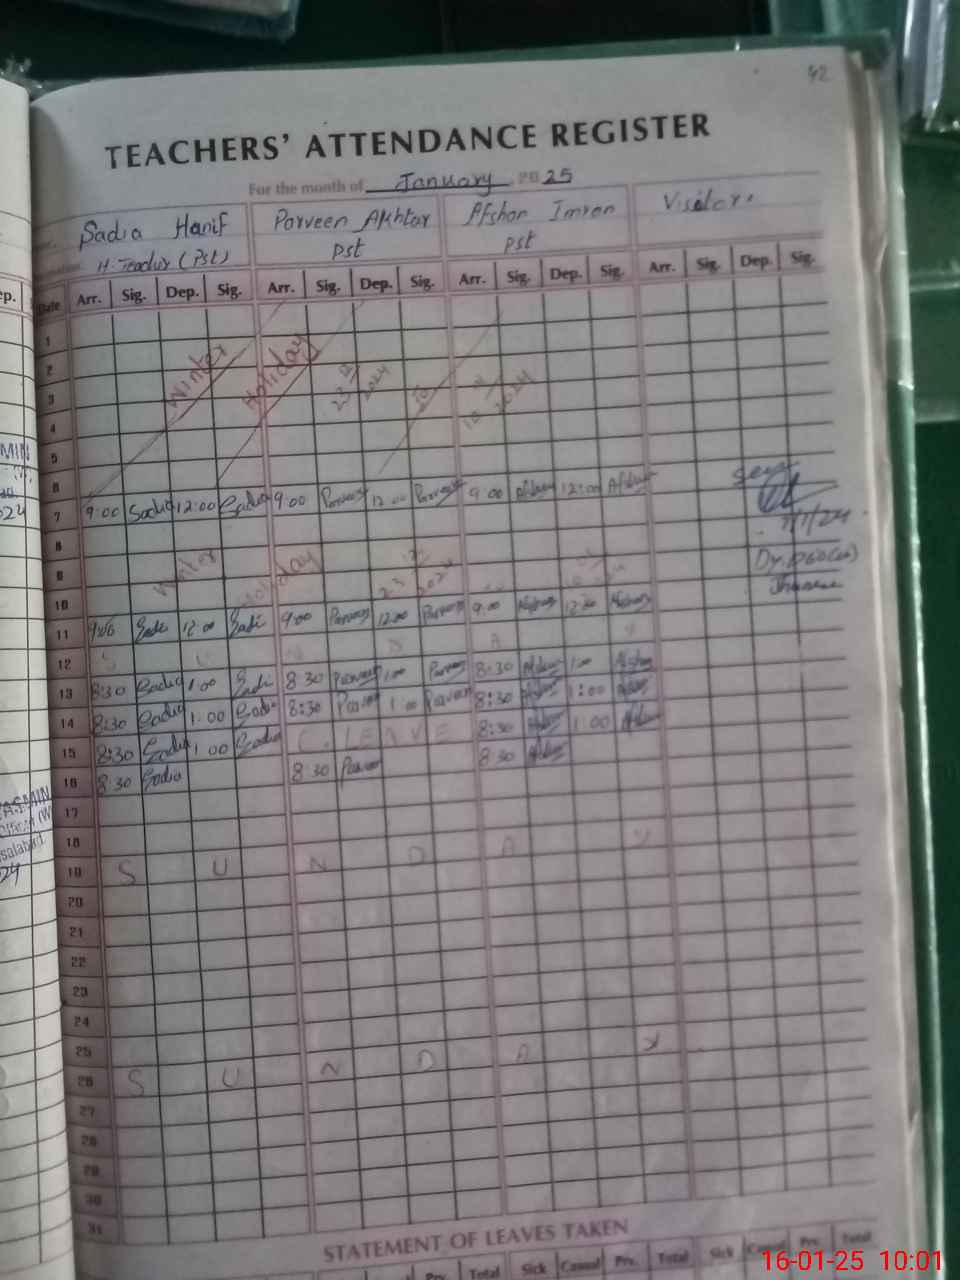 42
TEACHERS' ATTENDANCE REGISTER
For the month of January 2025
Sadia Hanif Parveen Akhtar Afshan Imran Visitor.
H. Teacher (Pst) Pst Pst
Date Arr. Sig. Dep. Sig. Arr. Sig. Dep. Sig. Arr. Sig. Dep. Sig. Arr. Sig. Dep. Sig.
1
2
3
4
5
6
Winter Holiday 23 2024 10 2024
7 9:00 Sadia 12:00 Sadia 9:00 Parveen 12:00 Parveen 9:00 Afshan 12:00 Afshan
7/1/24
8
9
Winter Holiday 23 2024
10
11 9:00 Sadi 12:00 Sadi 9:00 Parveen 12:00 Parveen 9:00 Afshan 12:00 Afshan
12 S U N D A Y
13 8:30 Sadia 1:00 Sadi 8:30 Parveen 1:00 Parveen 8:30 Afshan 1:00 Afshan
14 8:30 Sadia 1:00 Sadia 8:30 Parveen 1:00 Parveen 8:30 Afshan 1:00 Afshan
15 8:30 Sadia 1:00 Sadia C. LEAVE 8:30 Afshan 1:00 Afshan
16 8:30 Sadia 8:30 Parveen 8:30 Afshan
17
18
19 S U N D A Y
20
21
22
23
24
25
26 S U N D A Y
27
28
29
30
31
STATEMENT OF LEAVES TAKEN
Prv. Total Sick Casual Prv. Total Sick Casual Prv. Total
16-01-25 10:01